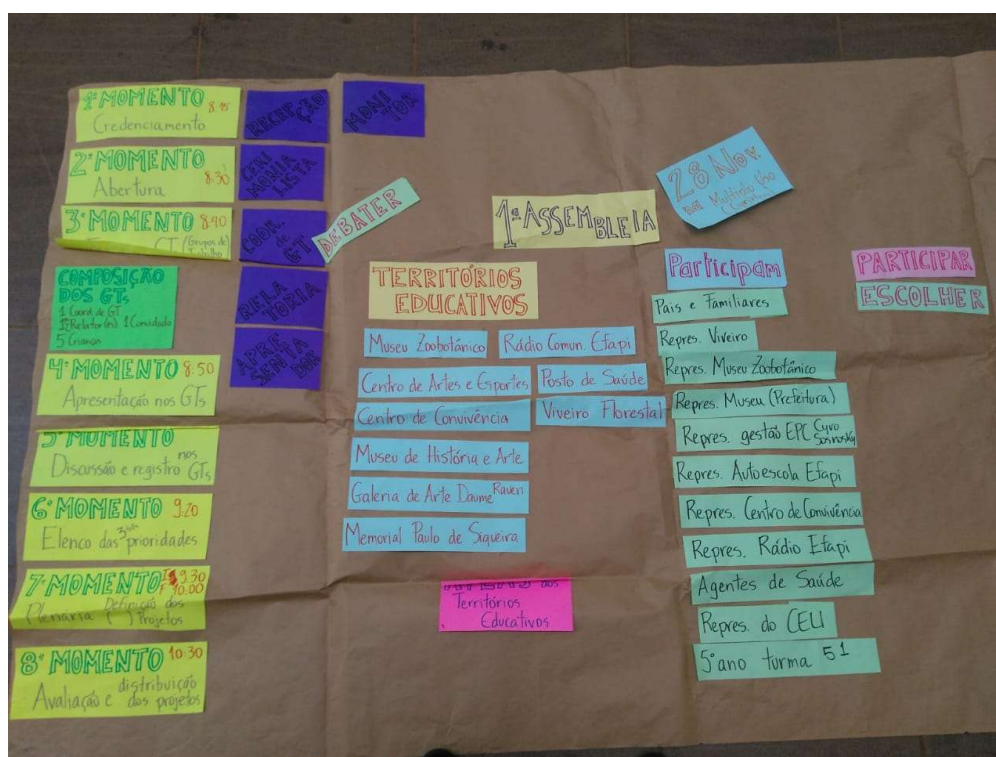 1º MOMENTO 8:15
Credenciamento
2º MOMENTO 8:30
Abertura
3º MOMENTO 8:40
GT (Grupos de
Trabalho
COMPOSIÇÃO
DOS GTs
1 Coord de GT
1 Relator(a) 1 Convidado
5 Crianças
4º MOMENTO 8:50
Apresentação nos GTs
5º MOMENTO
Discussão e registro nos GTs
6º MOMENTO 9:20
Elenco das 3 prioridades
7º MOMENTO I 9:30
F 10:00
Plenária Definição dos
Projetos
8º MOMENTO 10:30
Avaliação e distribuição
dos projetos
RECEPÇÃO
CERI
MONIA
LISTA
COOR.
de
GT
RELA
TORIA
APRE
SENTA
DOR
MONI
TOR
DEBATER
1ª ASSEMBLEIA
28 Nov
TERRITÓRIOS
EDUCATIVOS
Museu Zoobotânico
Rádio Comun. Efapi
Centro de Artes e Esportes
Posto de Saúde
Centro de Convivência
Viveiro Florestal
Museu de História e Arte
Galeria de Arte Daume Raven
Memorial Paulo de Siqueira
dos
Territórios
Educativos
Participam
Pais e Familiares
Repres. Viveiro
Repres. Museu Zoobotânico
Repres. Museu (Prefeitura)
Repres. gestão EPC Cyro
Sosnosky
Repres. Autoescola Efapi
Repres. Centro de Convivência
Repres. Rádio Efapi
Agentes de Saúde
Repres. do CEU
5º ano turma 51
PARTICIPAR
ESCOLHER